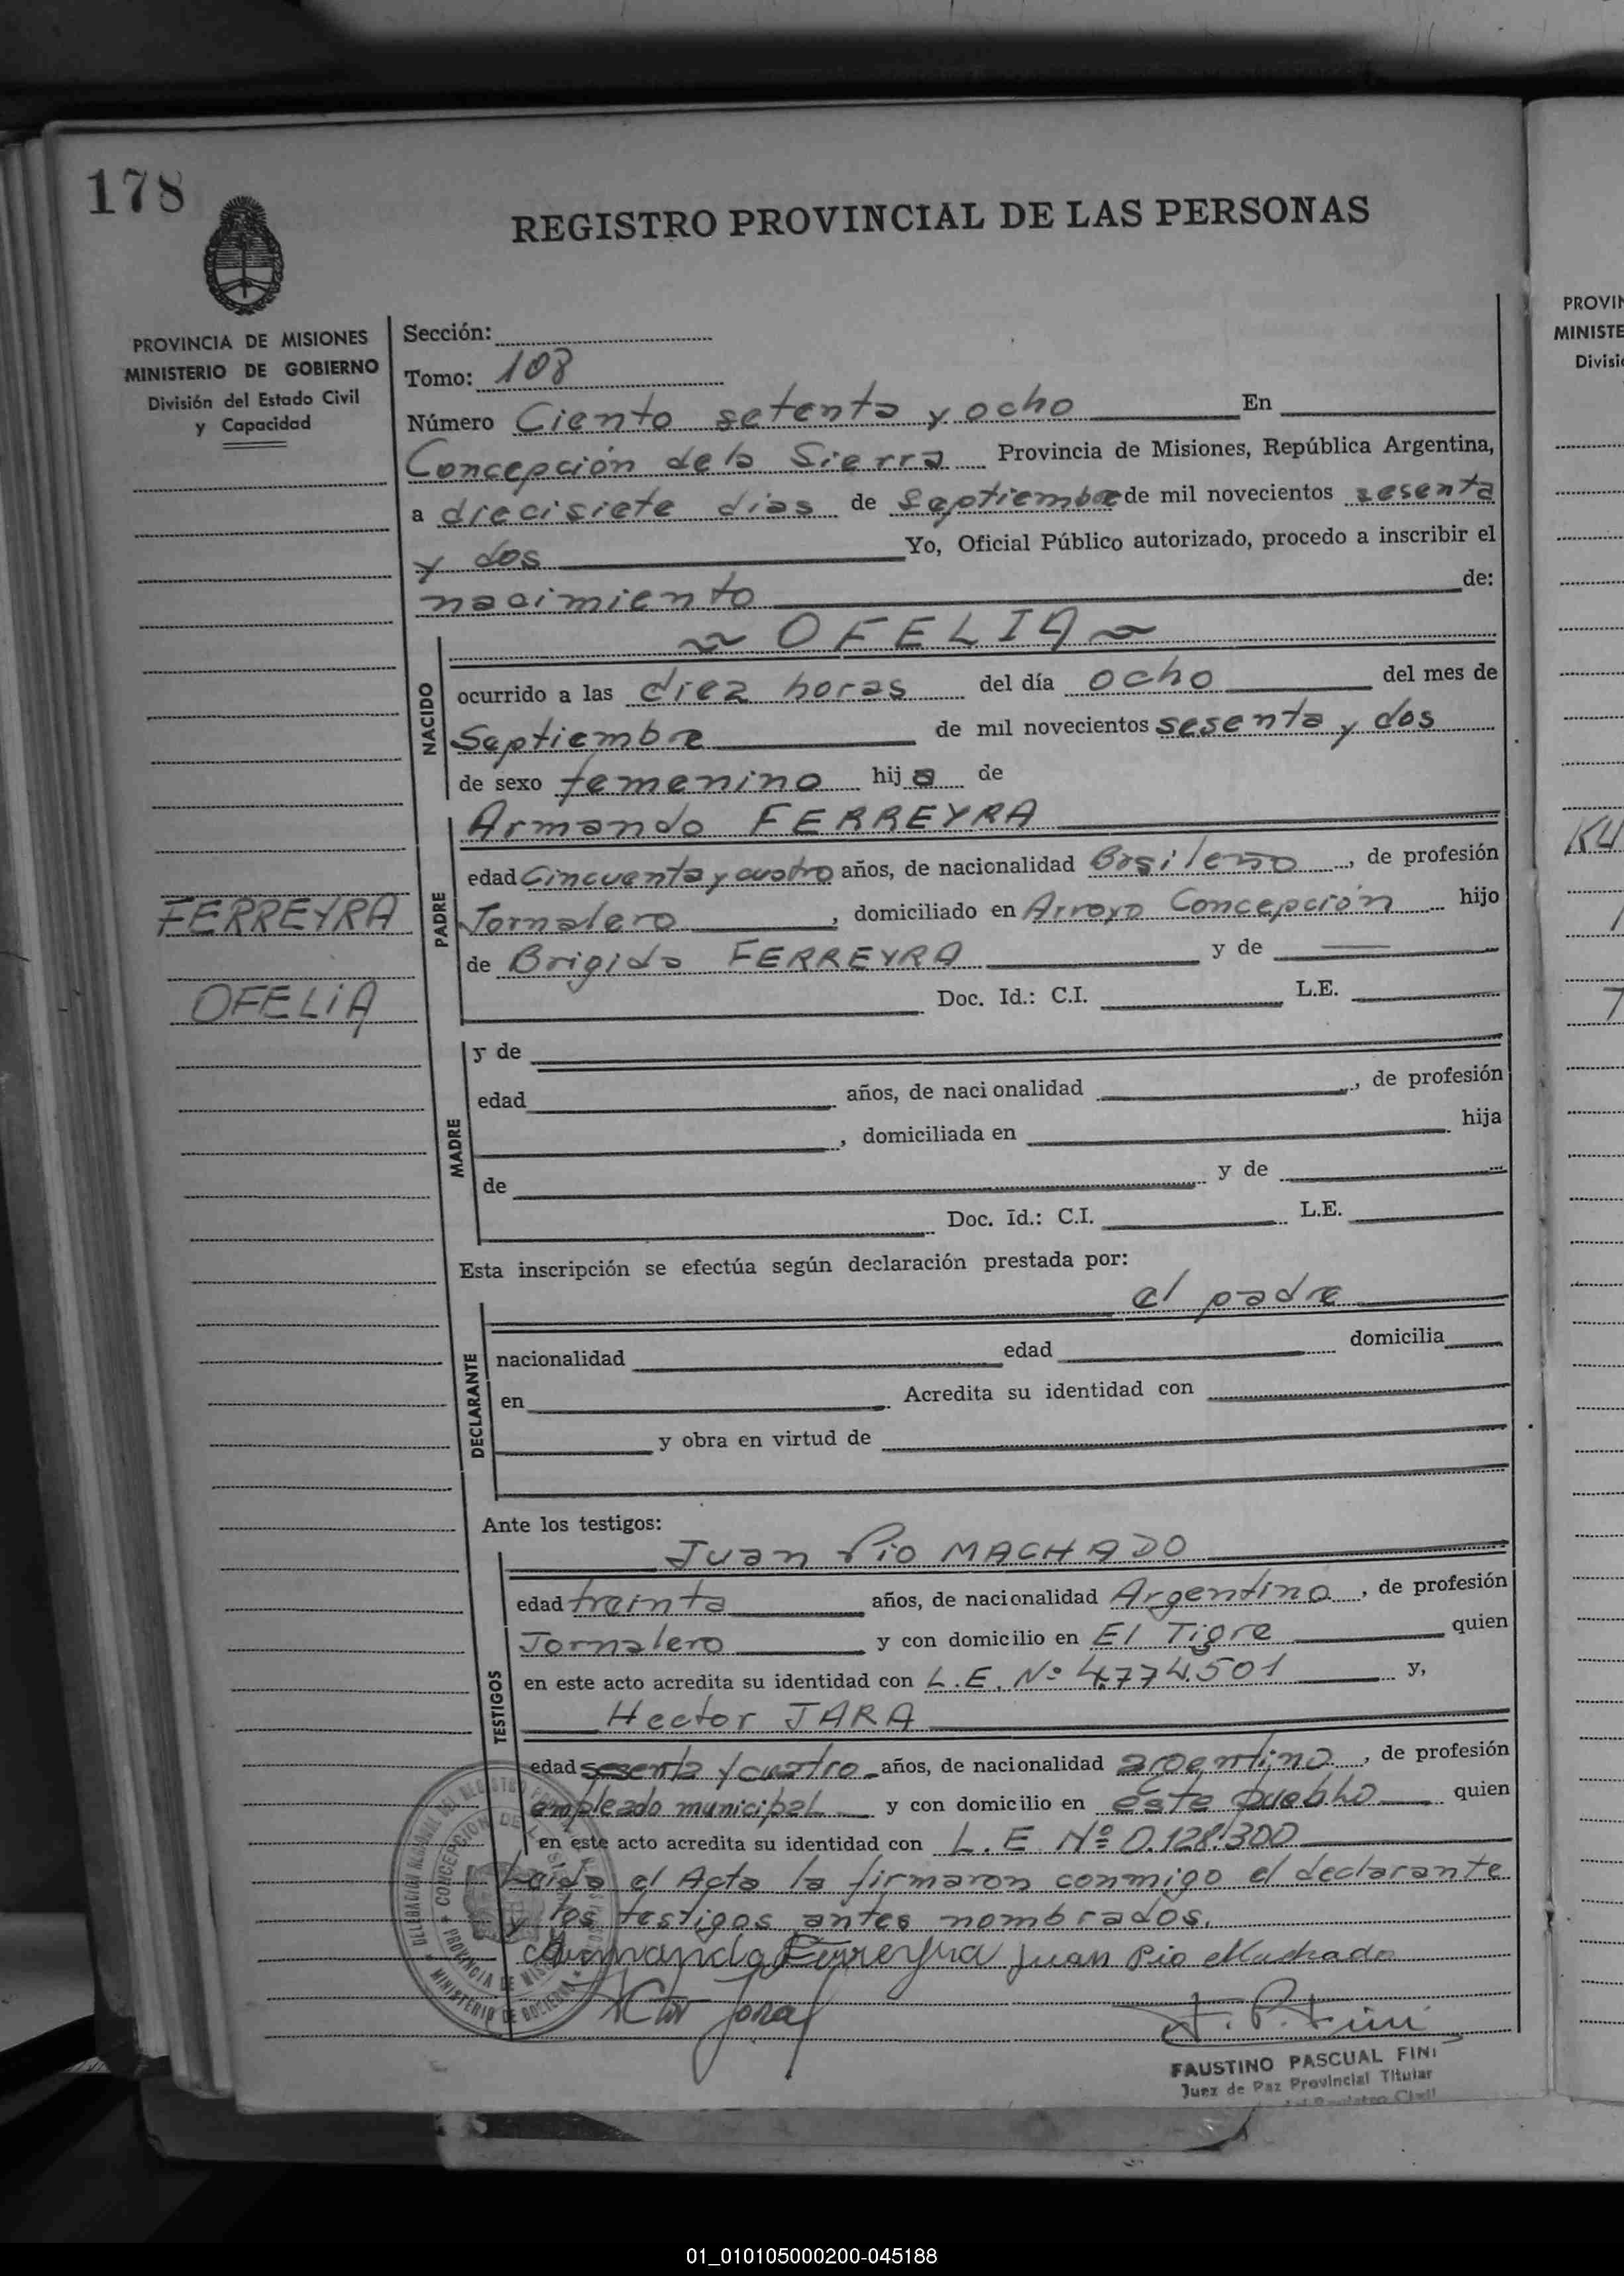 178
REGISTRO PROVINCIAL DE LAS PERSONAS
PROVINCIA DE MISIONES
MINISTERIO DE GOBIERNO
División del Estado Civil
y Capacidad
Sección:
Tomo: 108
Número Ciento setenta y ocho En
Concepción de la Sierra Provincia de Misiones, República Argentina,
a diecisiete días de Septiembre de mil novecientos sesenta
y dos Yo, Oficial Público autorizado, procedo a inscribir el
nacimiento de:
OFELIA
NACIDO
ocurrido a las diez horas del día ocho del mes de
Septiembre de mil novecientos sesenta y dos
de sexo femenino hija de
Armando FERREYRA
PADRE
edad Cincuenta y cuatro años, de nacionalidad Brasileño, de profesión
Jornalero, domiciliado en Arroyo Concepción hijo
de Brigida FERREYRA y de
Doc. Id.: C.I. L.E.
FERREYRA
OFELIA
MADRE
y de
edad años, de nacionalidad, de profesión
, domiciliada en hija
de y de
Doc. Id.: C.I. L.E.
Esta inscripción se efectúa según declaración prestada por:
el padre
DECLARANTE
nacionalidad edad domicilia
en Acredita su identidad con
y obra en virtud de
Ante los testigos:
Juan Pio MACHADO
TESTIGOS
edad treinta años, de nacionalidad Argentino, de profesión
Jornalero y con domicilio en El Tigre quien
en este acto acredita su identidad con L.E. Nº 4.774.501 y,
Hector JARA
edad sesenta y cuatro años, de nacionalidad argentino, de profesión
empleado municipal y con domicilio en este pueblo quien
en este acto acredita su identidad con L.E. Nº 0.128.300
Leida el Acta la firmaron conmigo el declarante
y los testigos antes nombrados.
Armando Ferreyra Juan Pio Machado
F. P. Fini
FAUSTINO PASCUAL FINI
Juez de Paz Provincial Titular
PROVIN
MINISTE
Divisi
KU
01_010105000200-045188